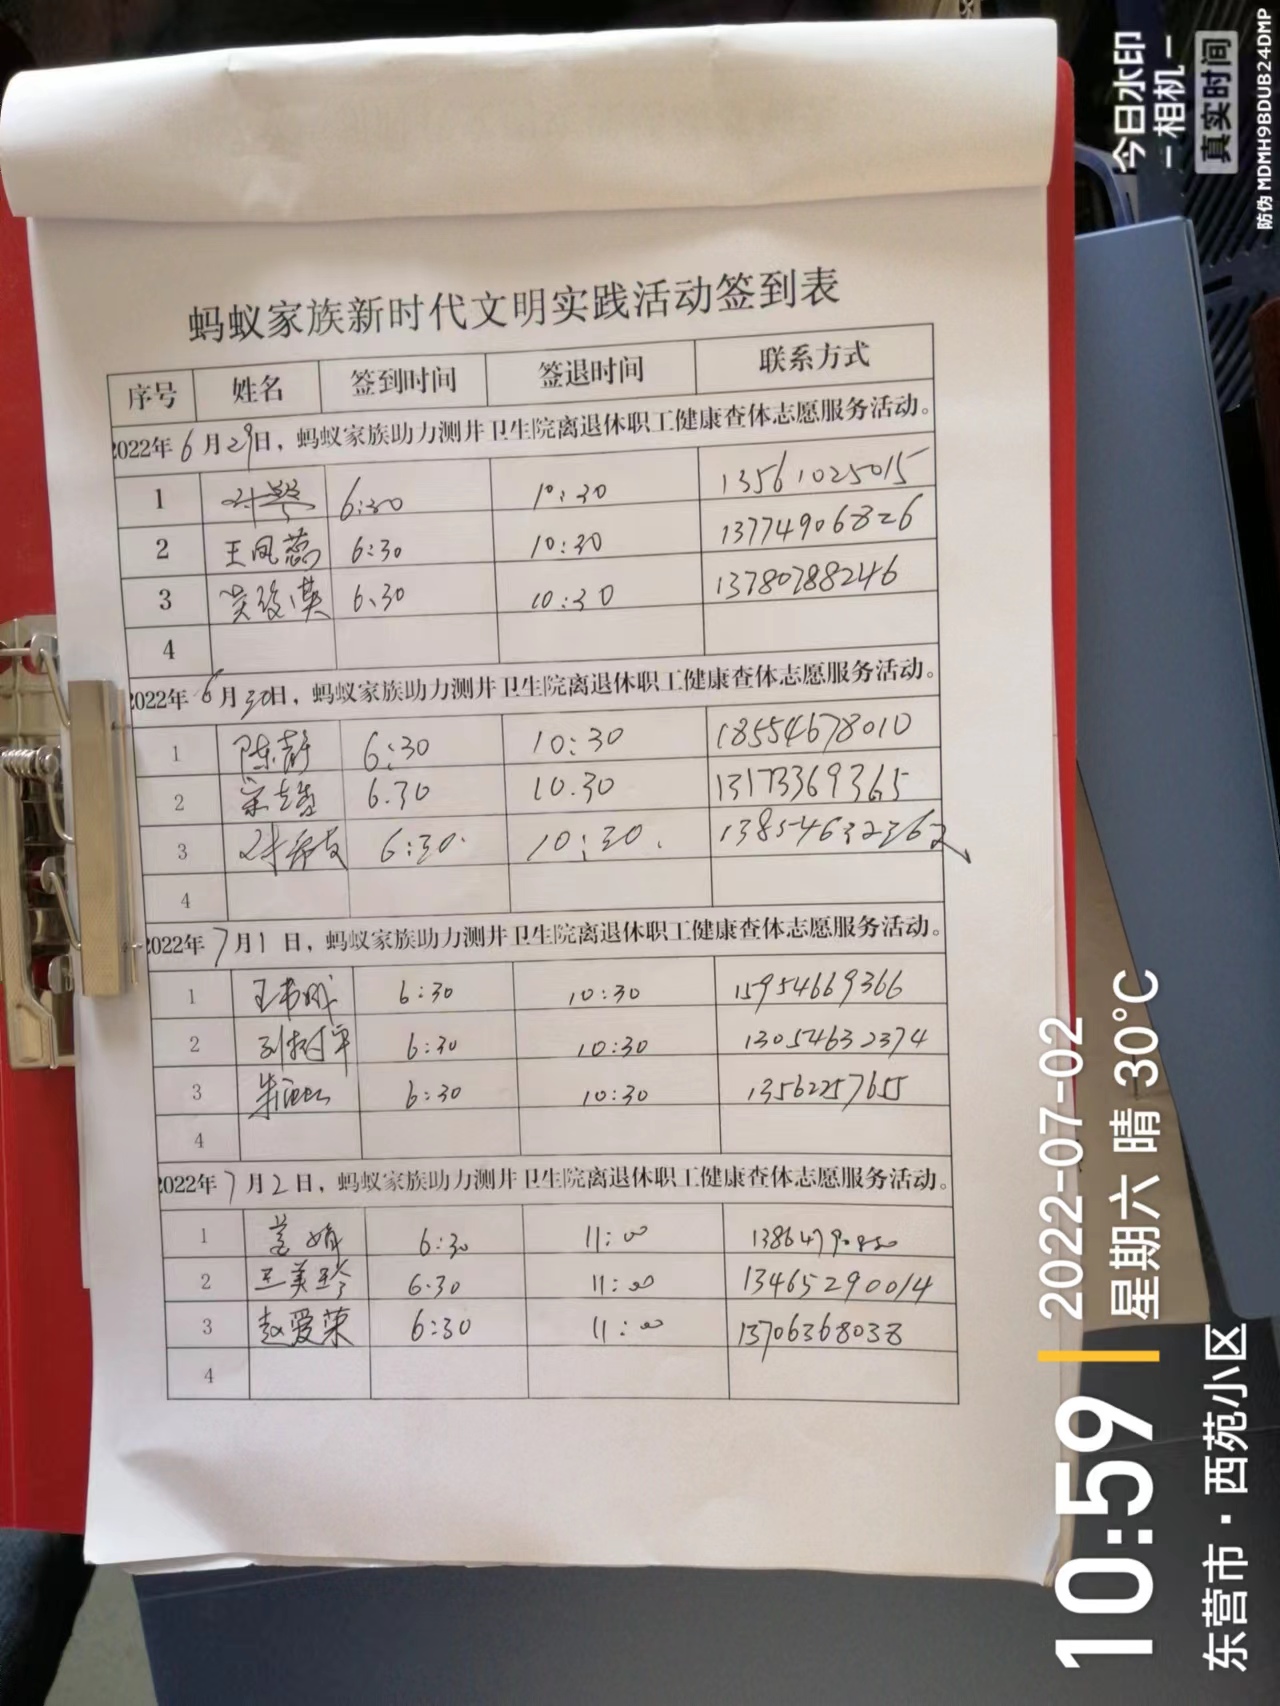 蚂蚁家族新时代文明实践活动签到表
序号 姓名 签到时间 签退时间 联系方式
2022年6月29日，蚂蚁家族助力测井卫生院离退休职工健康查体志愿服务活动。
1 6:30 10:30 13561025015
2 王凤蕊 6:30 10:30 13774906826
3 6:30 10:30 13780788246
4
2022年6月30日，蚂蚁家族助力测井卫生院离退休职工健康查体志愿服务活动。
1 陈静 6:30 10:30 18554678010
2 6.30 10.30 13173369365
3 6:30. 10:30. 13854632362
4
2022年7月1日，蚂蚁家族助力测井卫生院离退休职工健康查体志愿服务活动。
1 6:30 10:30 15954669366
2 刘树平 6:30 10:30 13054632374
3 6:30 10:30 13562257655
4
2022年7月2日，蚂蚁家族助力测井卫生院离退休职工健康查体志愿服务活动。
1 6:30 11:00
2 王美玲 6.30 11:00 13465290014
3 赵爱荣 6:30 11:00 13706368038
4
今日水印
-相机-
真实时间
防伪 MDMH9BDUB24DMP
10:59
2022-07-02
星期六 晴 30°C
东营市·西苑小区